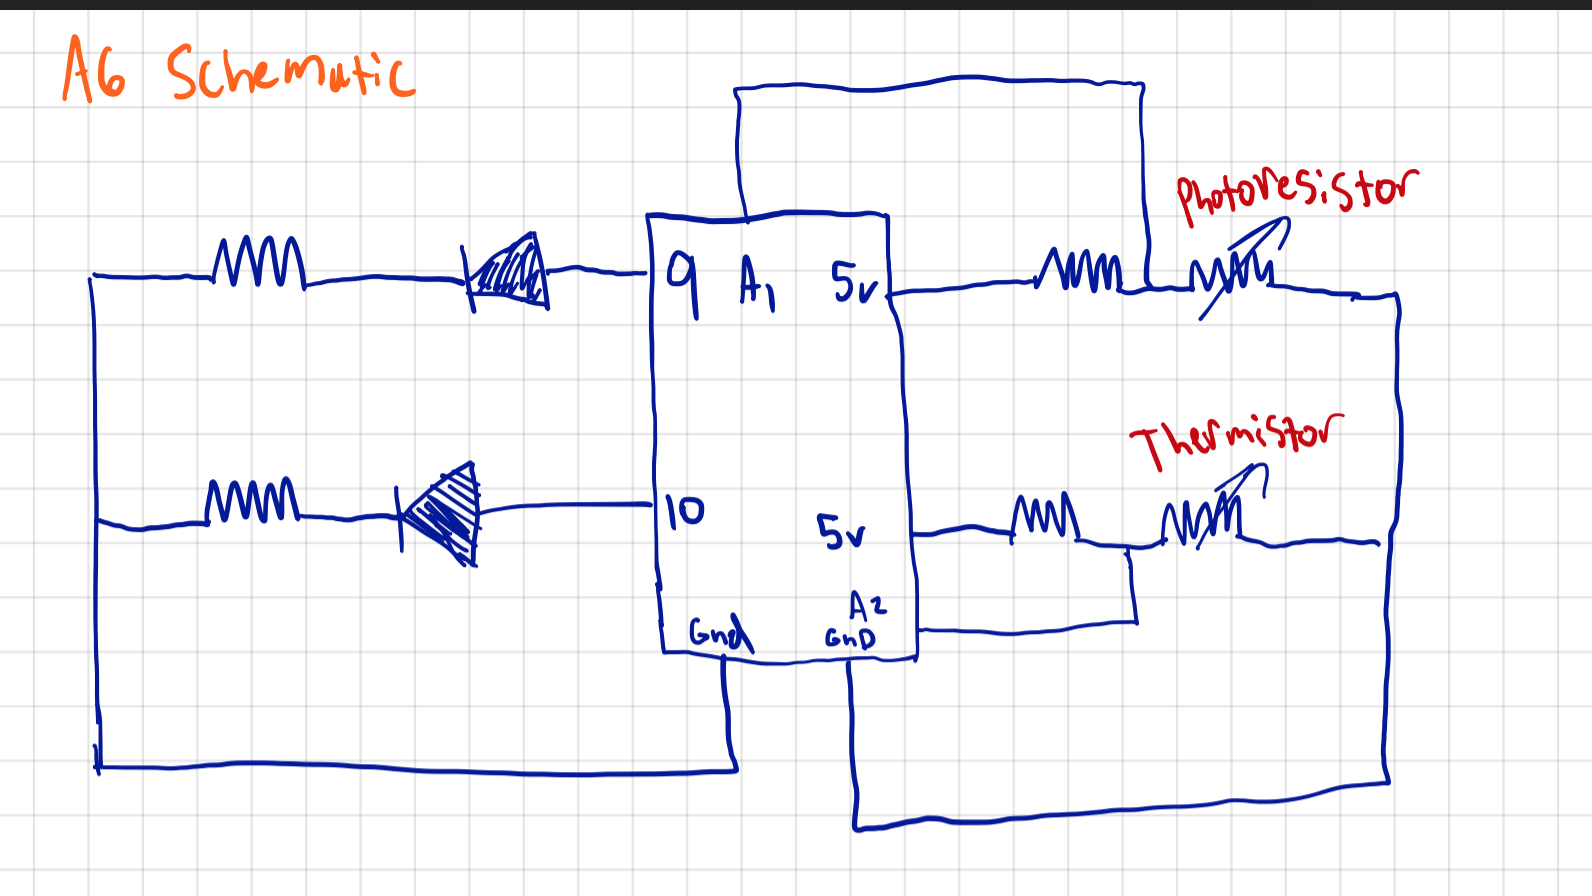 A6 Schematic
Photoresistor
9 A1 5v
Thermistor
10
5v
A2
Gnd
GnD